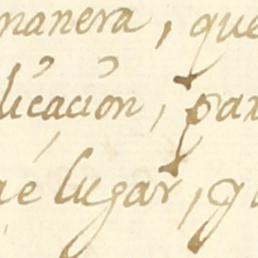 manera, que
licación, par
é lugar, q